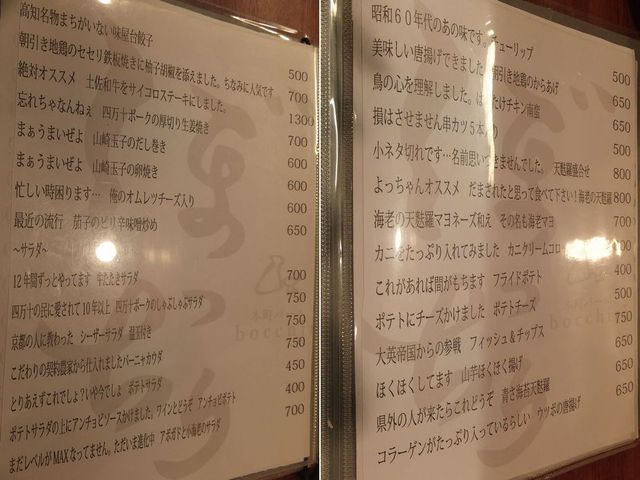 高知名物まちがいない味屋台餃子 500
朝引き地鶏のセセリ鉄板焼きに柚子胡椒を添えました。ちなみに人気です 700
絶対オススメ 土佐和牛をサイコロステーキにしました。 1300
忘れちゃなんねぇ 四万十ポークの厚切り生姜焼き 700
まぁうまいぜよ 山崎玉子のだし巻き 600
まぁうまいぜよ 山崎玉子の卵焼き 600
忙しい時困ります… 俺のオムレツチーズ入り 600
最近の流行 茄子のピリ辛味噌炒め 650
~サラダ~
12年間ずっとやってます 牛たたきサラダ 700
四万十の民に愛されて10年以上 四万十ポークのしゃぶしゃぶサラダ 750
京都の人に教わった シーザーサラダ 温玉付き 750
こだわりの契約農家から仕入れましたバーニャカウダ 750
とりあえずこれでしょ?いや今でしょ ポテトサラダ 450
ポテトサラダの上にアンチョビソースかけました。ワインとどうぞ アンチョビポテト 400
まだレベルがMAXなってません。ただいま進化中 アボガドと小海老のサラダ 700
本町バー
bocchi
昭和60年代のあの味です。チューリップ 500
美味しい唐揚げできました 朝引き地鶏のからあげ 650
鳥の心を理解しました。は たけチキン南蛮 650
損はさせません串カツ5本入り 650
小ネタ切れです…名前思いできませんでした。 天麩羅盛合せ 800
よっちゃんオススメ だまされたと思って食べて下さい!海老の天麩羅 800
海老の天麩羅マヨネーズ和え その名も海老マヨ 700
カニをたっぷり入れてみました カニクリームコロ
これがあれば間がもちます フライドポテト 400
ポテトにチーズかけました ポテトチーズ 500
大英帝国からの参戦 フィッシュ&チップス 650
ほくほくしてます 山芋ほくほく揚げ 650
県外の人が来たらこれどうぞ 青さ海苔天麩羅 650
コラーゲンがたっぷり入っているらしい ウツボの唐揚げ